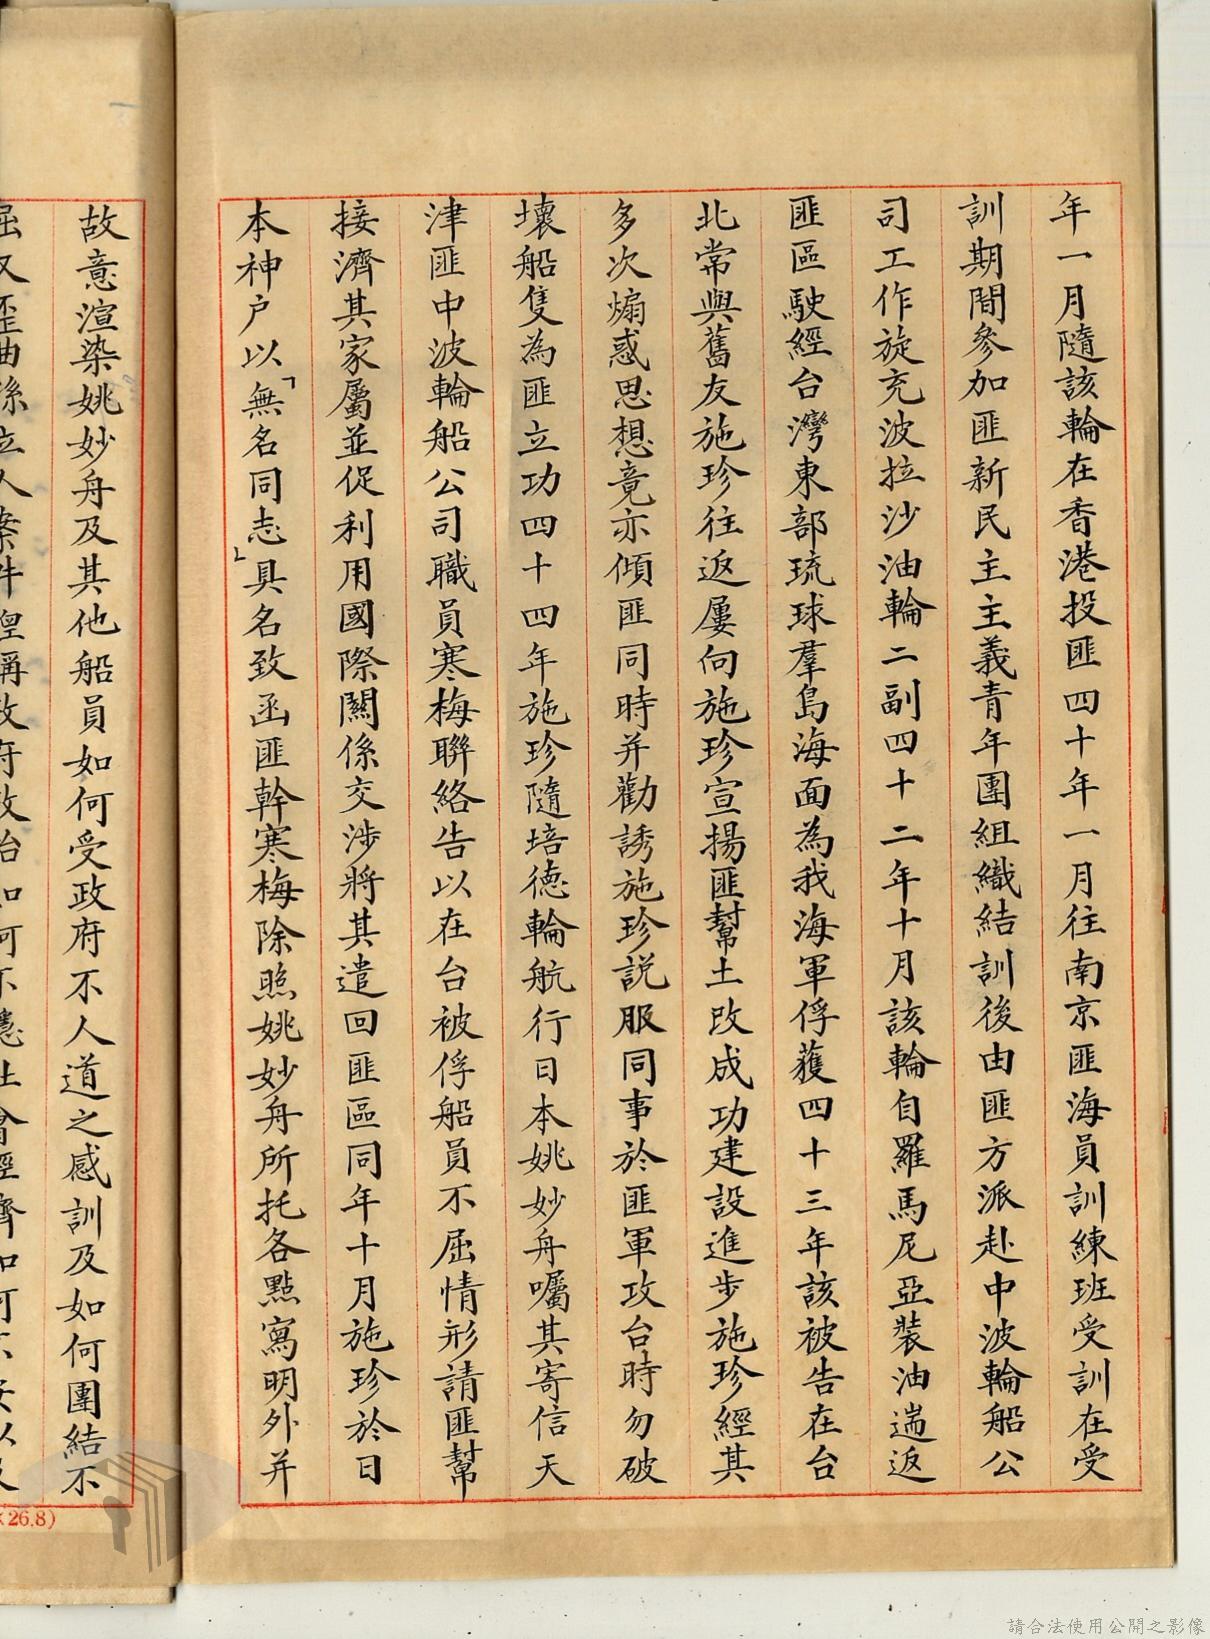 年一月隨該輪在香港投匪四十年一月往南京匪海員訓練班受訓在受
訓期間參加匪新民主主義青年團組織結訓後由匪方派赴中波輪船公
司工作旋充波拉沙油輪二副四十二年十月該輪自羅馬尼亞裝油遄返
匪區駛經台灣東部琉球羣島海面為我海軍俘獲四十三年該被告在台
北常與舊友施珍往返屢向施珍宣揚匪幫土改成功建設進步施珍經其
多次煽惑思想竟亦傾匪同時并勸誘施珍説服同事於匪軍攻台時勿破
壞船隻為匪立功四十四年施珍隨培德輪航行日本姚妙舟囑其寄信天
津匪中波輪船公司職員寒梅聯絡告以在台被俘船員不屈情形請匪幫
接濟其家屬並促利用國際關係交涉將其遣回匪區同年十月施珍於日
本神户以「無名同志」具名致函匪幹寒梅除照姚妙舟所托各點寫明外并
故意渲染姚妙舟及其他船員如何受政府不人道之感訓及如何團結不
26.8)
請合法使用公開之影像